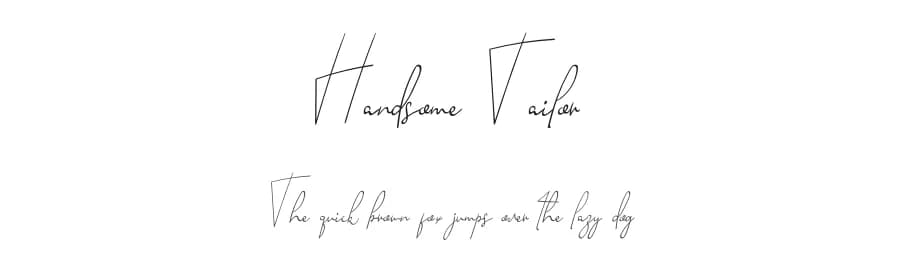 Handsome Tailor
The quick brown fox jumps over the lazy dog